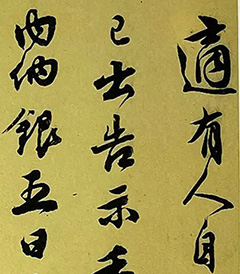 適有人自
已出告示
内納銀五日